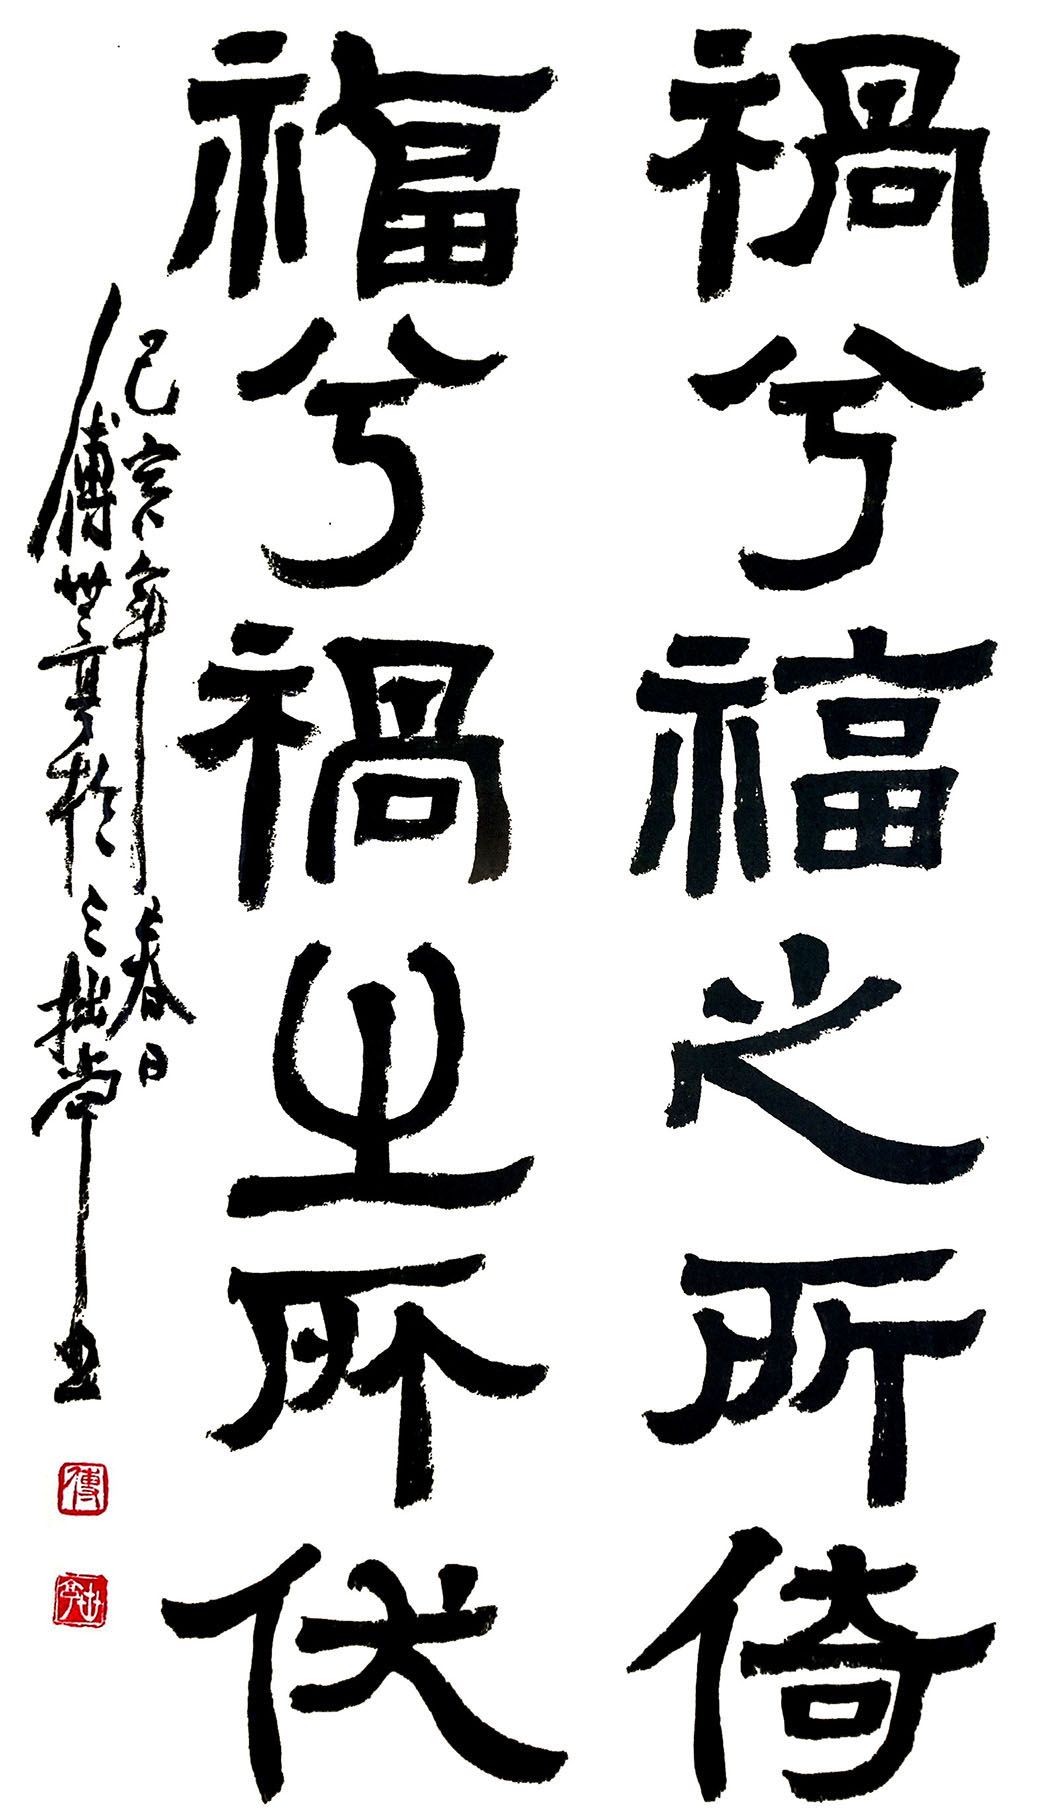 禍兮福之所倚
福兮禍之所伏
己亥年春日
傅世亨於三拙堂書
傅
世亨